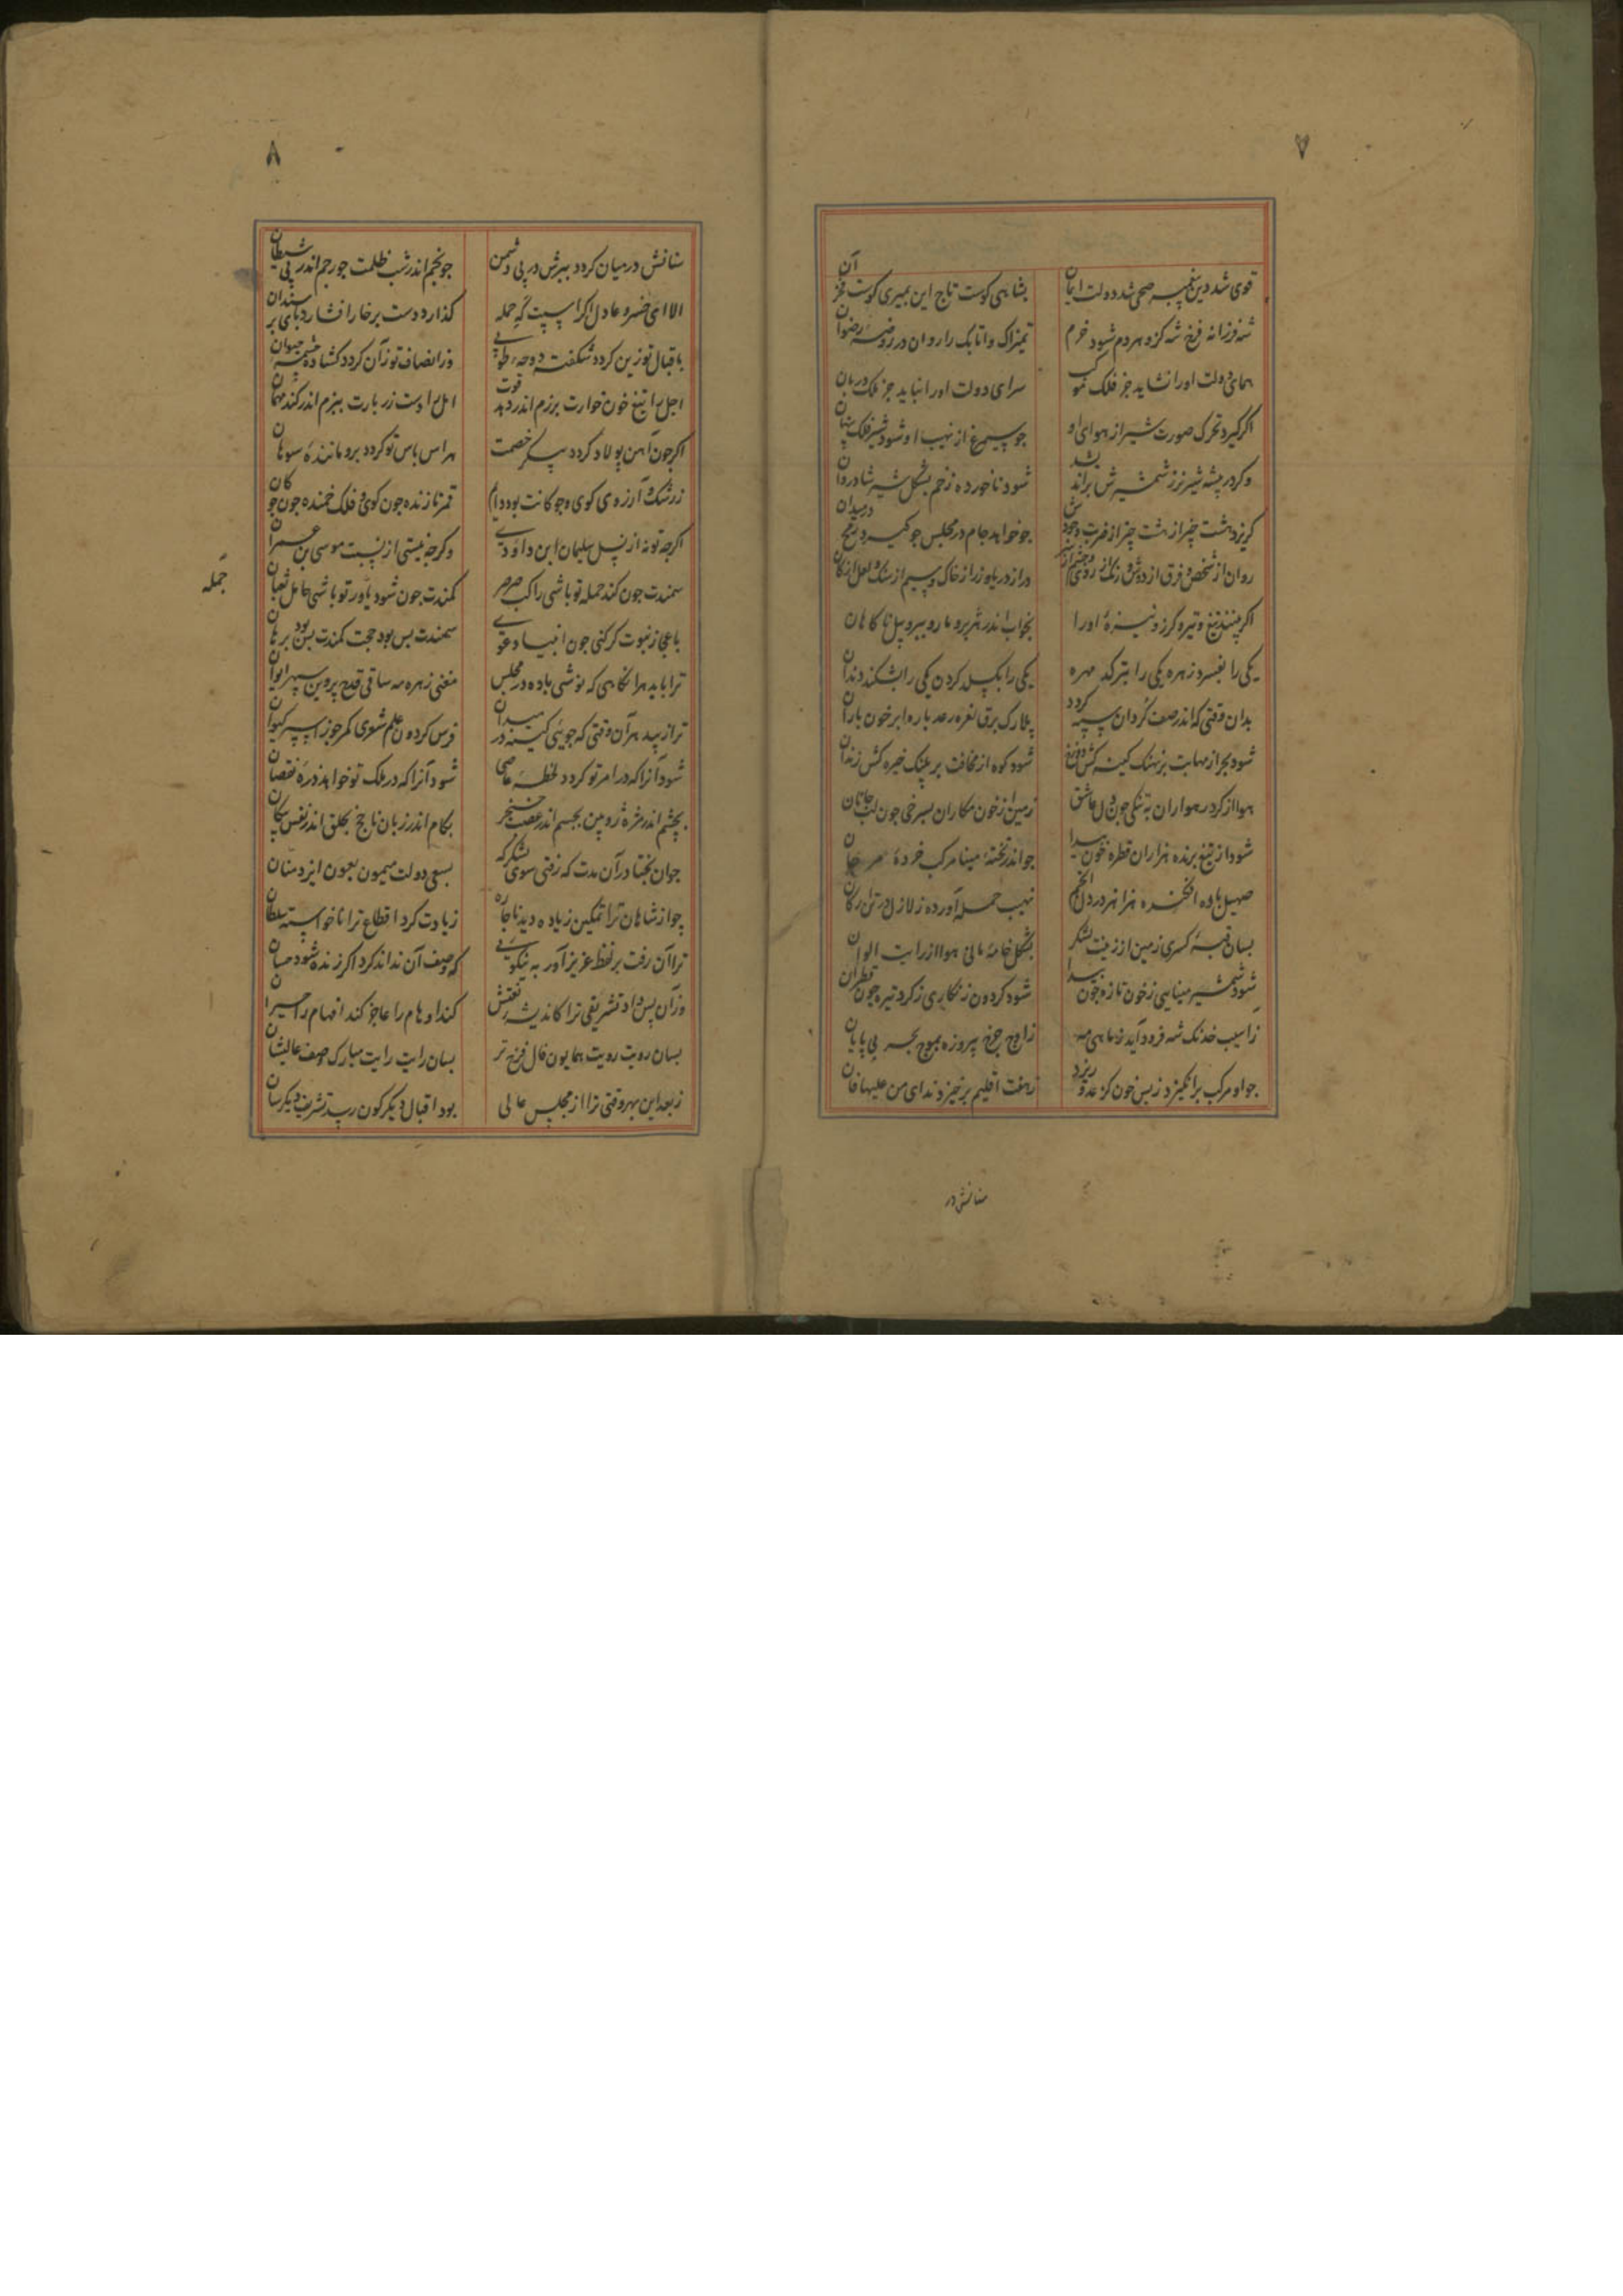 ۷
قوی شد دین پیغمبر صحی شد دولت ایمان بشاهی کوست تاج این بمیری کوست فخر آن
شه فرزانه فرخ شه کزو هر دم شود خرم تمیراک و اتابک را روان در روضهٔ رضوان
همای دولت او را نشاید جز فلک موکب سرای دولت او را نباید جز ملک دربان
اکر کیرد تحرک صورت شیر از هوای او جو سیمرغ از نهیب او شود شیر فلک پنهان
وکر در بیشه شیر نرز شمشیرش براندیشد شود ناخورده زخم بشکل شیر شادروان
کریزد هشت چیز از هشت چیز از ضرب وجودش جو خواهد جام در مجلس جو کیرد رمح در میدان
روان از شخص و فرق از دوش و رنک از روی در از دریا و زر از خاک و سیم از سنک و لعل از کان
اکر بینند تیغ و تیر و کرز و نیزهٔ او را بخواب اندر هژبر و مار و ببر و پیل ناکاهان
یکی را بفسرد زهره یکی را بترکد مهره یکی را بکسلد کردن یکی را بشکند دندان
بدان وقتی که اندر صف کردان سپه کردد بلارک برق نعره رعد باره ابر خون باران
شود بحر از مهابت بر نهنک کینه کش دوزخ شود کوه از مخافت بر پلنک خیره کش زندان
هوا از کرد رهواران به تنکی چون دل عاشق زمین از خون مکاران بسرخی جون لب جانان
شود از تیغ برنده هزاران قطره خون پیدا جو اندر تختهٔ مینا مرکب خردهٔ مرجان
صهیل باره افکنده هزاهز در دل انجم نهیب حمله آورده زلازل در تن ارکان
بسان قبهٔ کسری زمین از زینت لشکر بشکل خامهٔ مانی هوا از رایت الوان
شود شمشیر مینایی ز خون تازه جون بیدا شود کردون زنکاری ز کرد تیره جون قطران
ز اسیب خدنک شه فرود آید ز ماهی مه ز اوج جرخ پیروزه بموج بحر بی پایان
جو او مرکب برانکیزد ز بس خون کز عدو ریزد ز هفت اقلیم برخیزد ندای من علیها فان
سنانش در
۸
سنانش در میان کردد ببرش در پی دشمن جو نجم اندر شب ظلمت جو رجم اندر پی شیطان
الا ای خسرو عادل اکر اسپت که حمله کذارد دست بر خارا فشارد پای بر سندان
باقبال تو زین کردد شکفته دوحهٔ طوبی وز انصاف تو زآن کردد کشاده چشمه حیوان
اجل را تیغ خون خوارت برزم اندر دهد قوت امل را دست زر بارت ببزم اندر کند مهمان
اکر جون آهن پولاد کردد پیکر خصمت هراس باس تو کردد برو مانندهٔ سوهان
ز رشک و آرزوی کوی و جوکانت بود دایم قمر تازنده جون کوی و فلک خمنده جون جوکان
اکرجه تو نه از نسل سلیمان ابن داودی وکرجه نیستی از نسبت موسی بن عمران
سمندت جون کند حمله تو باشی راکب صرصر کمندت جون شود یاور تو باشی حامل ثعبان
جمله
باعجاز نبوت کر کنی جون انبیا دعوی سمندت بس بود حجت کمندت بس بود برهان
ترا باید هر انکاهی که نوشی باده در مجلس مغنی زهره مه ساقی قدح پروین سپهر ایوان
ترا زیبد هر آن وقتی که جویی کینه در میدان فرس کردون علم شعری کمر جوزا سپر کیوان
شود آنرا که در امر تو کردد لحظهٔ عاصی شود آنرا که در ملک تو خواهد ذرهٔ نقصان
بچشم اندر مژه ژوپین بجسم اندر عصب خنجر بکام اندر زبان ناجخ بحلق اندر نفس پیکان
جوان بختا در آن مدت که رفتی سوی لشکر که بسعی دولت میمون بعون ایزد منان
چو از شاهان ترا تمکین زیاده دید ناچاره زیادت کرد اقطاع ترا ناخواسته سلطان
ترا آن رفت بر لفظ عزیز آور به نیکویی که وصف آن نداند کرد اکر زنده شود حسان
وزآن پس داد تشریفی ترا کاندیشهٔ نعتش کند اوهام را عاجز کند افهام را حیران
بسان رویت رویت همایون فال فرخ تر بسان رایت رایت مبارک وصف عالیشان
ز بعد این بهر وقتی ترا از مجلس عالی بود اقبال دیکر کون رسد تشریف دیکرسان